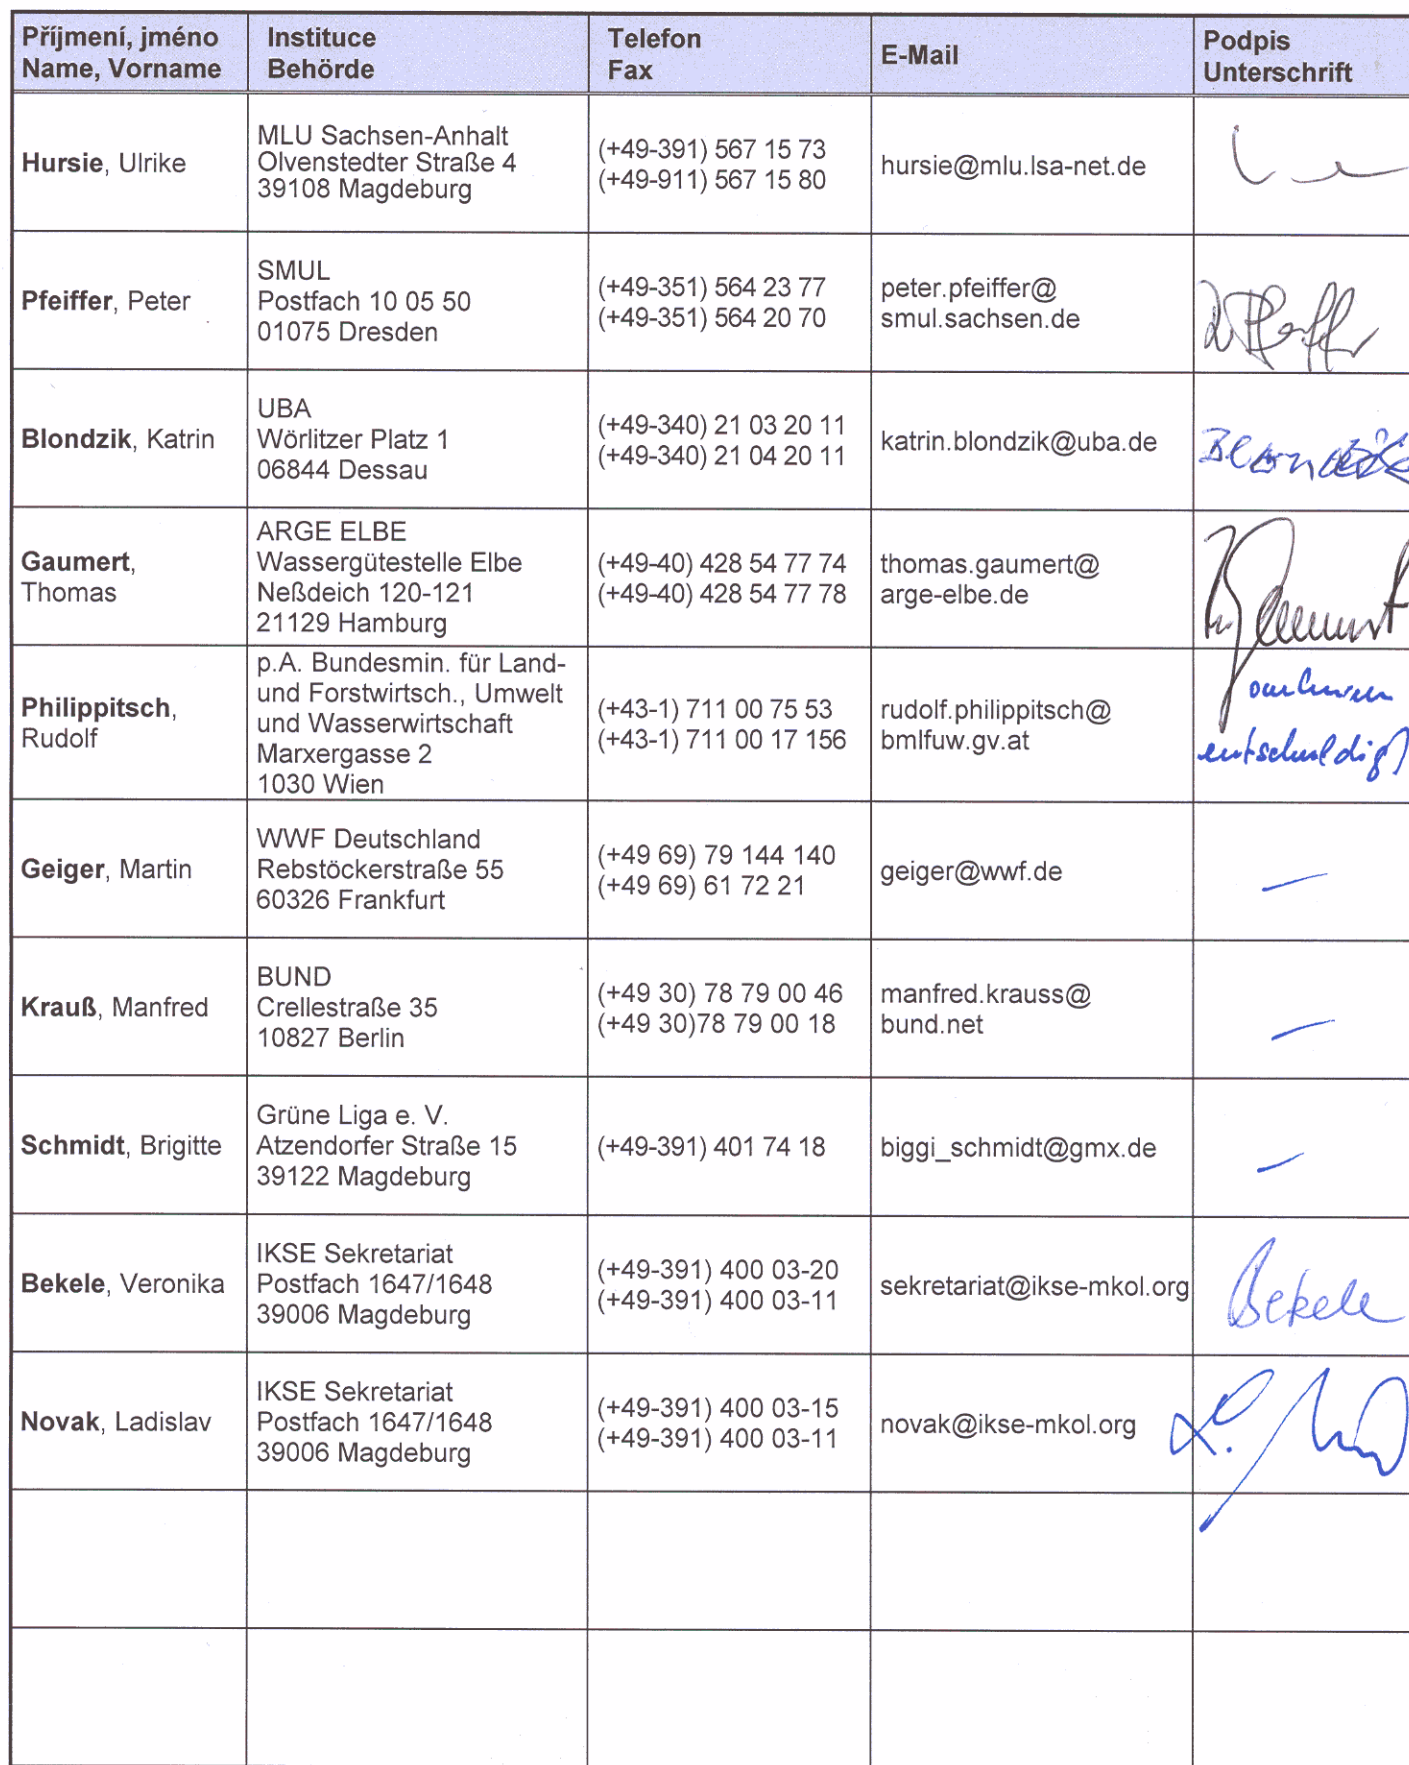 Příjmení, jméno
Name, Vorname
Instituce
Behörde
Telefon
Fax
E-Mail
Podpis
Unterschrift
Hursie, Ulrike
MLU Sachsen-Anhalt
Olvenstedter Straße 4
39108 Magdeburg
(+49-391) 567 15 73
(+49-911) 567 15 80
hursie@mlu.lsa-net.de
Pfeiffer, Peter
SMUL
Postfach 10 05 50
01075 Dresden
(+49-351) 564 23 77
(+49-351) 564 20 70
peter.pfeiffer@
smul.sachsen.de
Pfeiffer
Blondzik, Katrin
UBA
Wörlitzer Platz 1
06844 Dessau
(+49-340) 21 03 20 11
(+49-340) 21 04 20 11
katrin.blondzik@uba.de
Blondzik
Gaumert,
Thomas
ARGE ELBE
Wassergütestelle Elbe
Neßdeich 120-121
21129 Hamburg
(+49-40) 428 54 77 74
(+49-40) 428 54 77 78
thomas.gaumert@
arge-elbe.de
Gaumert
Philippitsch,
Rudolf
p.A. Bundesmin. für Land-
und Forstwirtsch., Umwelt
und Wasserwirtschaft
Marxergasse 2
1030 Wien
(+43-1) 711 00 75 53
(+43-1) 711 00 17 156
rudolf.philippitsch@
bmlfuw.gv.at
entschuldigt
Geiger, Martin
WWF Deutschland
Rebstöckerstraße 55
60326 Frankfurt
(+49 69) 79 144 140
(+49 69) 61 72 21
geiger@wwf.de
—
Krauß, Manfred
BUND
Crellestraße 35
10827 Berlin
(+49 30) 78 79 00 46
(+49 30)78 79 00 18
manfred.krauss@
bund.net
—
Schmidt, Brigitte
Grüne Liga e. V.
Atzendorfer Straße 15
39122 Magdeburg
(+49-391) 401 74 18
biggi_schmidt@gmx.de
—
Bekele, Veronika
IKSE Sekretariat
Postfach 1647/1648
39006 Magdeburg
(+49-391) 400 03-20
(+49-391) 400 03-11
sekretariat@ikse-mkol.org
Bekele
Novak, Ladislav
IKSE Sekretariat
Postfach 1647/1648
39006 Magdeburg
(+49-391) 400 03-15
(+49-391) 400 03-11
novak@ikse-mkol.org